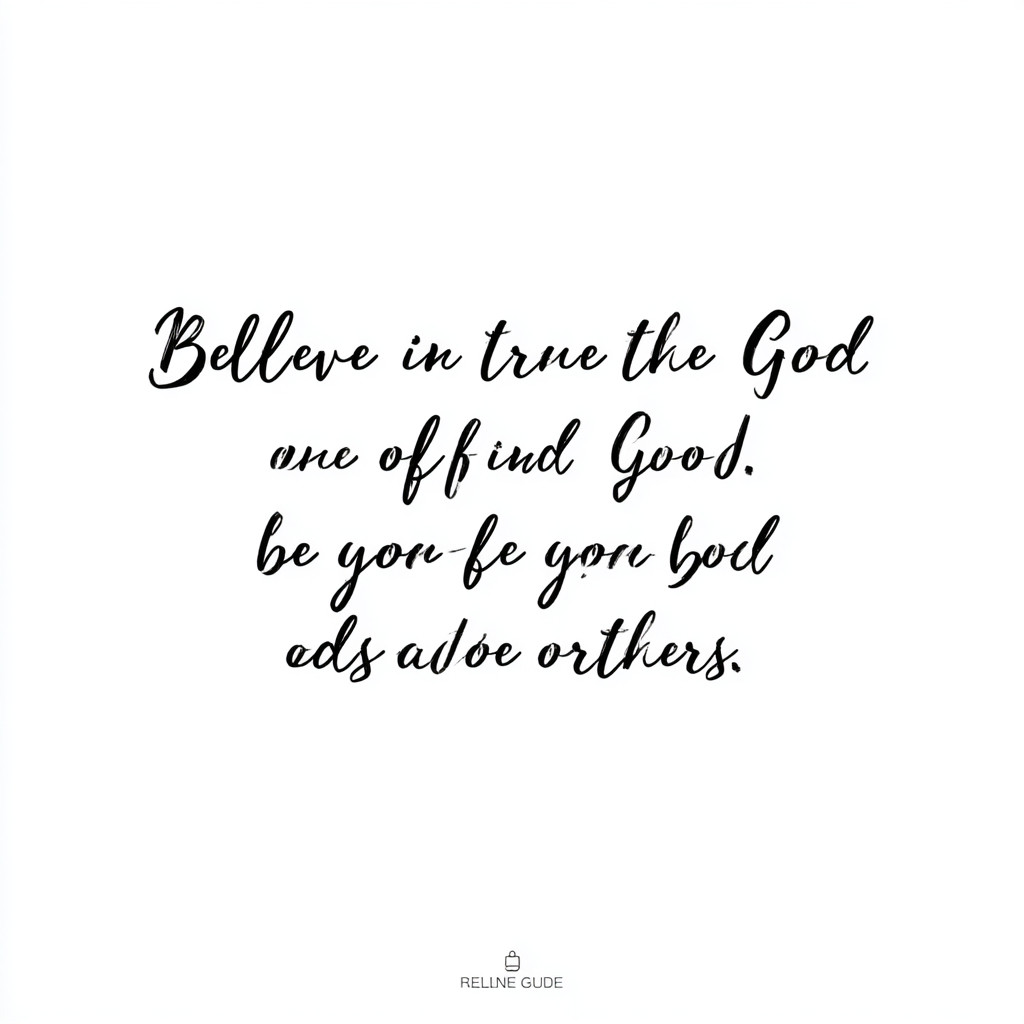 Belleve in true the God
one of find Good.
be you-fe your bod
ads adoe orthers.
RELLNE GUDE